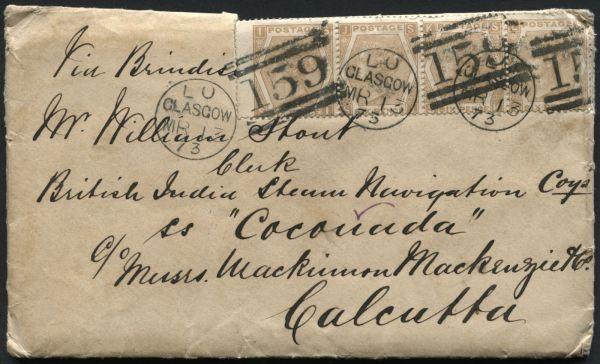 I POSTAGE S J POSTAGE S K POSTAGE S POSTAGE
Via Brindisi
159 159 15
LU
GLASGOW
MR 13
73
LU
GLASGOW
MR 13
73
LU
GLASGOW
MR 13
73
Mr. William Stout
Clerk
British India Steam Navigation Coy's
ss "Coconada"
c/o Messrs. Mackinnon Mackenzie & Co.
Calcutta